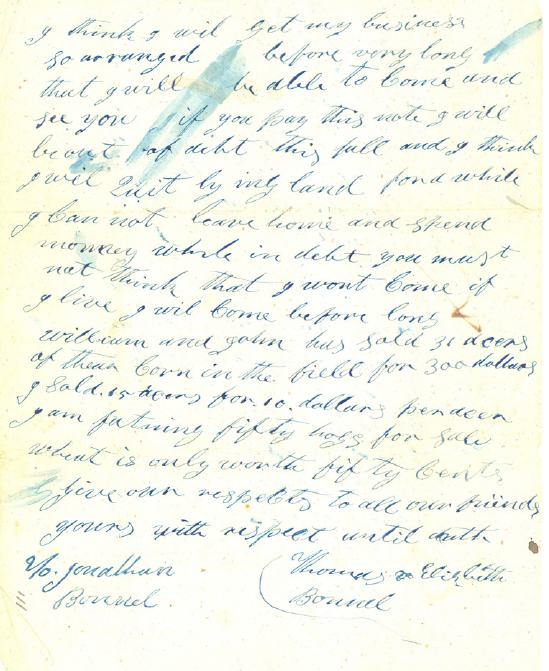 I think I wil get my business
so arranged before very long
that I will be able to Come and
see you if you pay this note I will
be out of debt this fall and I think
I will Quit by my land fond while
I Can not leave home and spend
monney while in debt you must
not think that I wont Come if
I live I wil Come before long
william and John has sold 31 acers
of thear Corn in the field for 300 dollars
I sold 15 acers for 10 dollars per acer
I am fatning fifty hogs for sale
wheat is only worth fifty Cents
give our respects to all our friends
yours with respect until death
To Jonathan
Bonnel
Thomas & Elizibeth
Bonnel